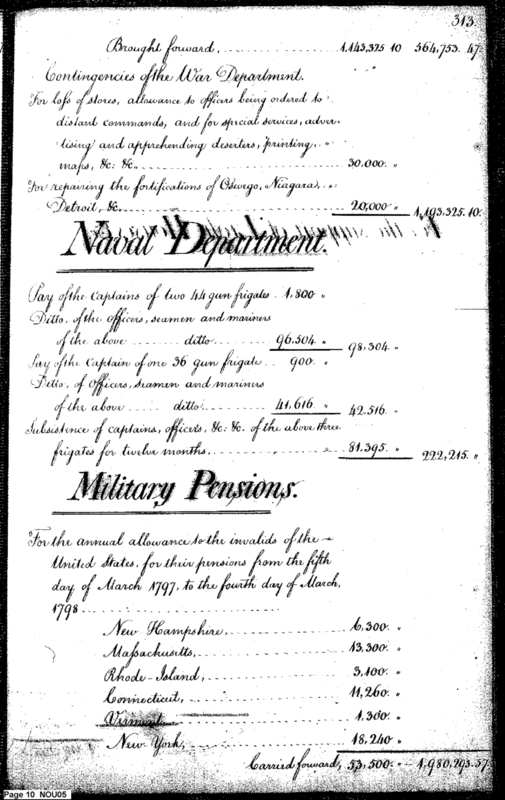 313.
Brought forward, 1,143,325 10 564,753. 47
Contingencies of the War Department.
For loss of stores, allowance to officers being ordered to
distant commands, and for special services, adver-
tising and apprehending deserters, printing
maps, &c: &c. 30,000. "
For repairing the fortifications of Oswego, Niagara, "
Detroit, &c. 20,000 " 1,193,325. 10.
Naval Department.
Pay of the Captains of two 44 gun frigates 1,800 "
Ditto, of the officers, seamen and mariners
of the above ditto 96,504 " 98,304. "
Pay of the Captain of one 36 gun frigate 900. "
Ditto, of Officers, seamen and mariners
of the above ditto 41,616. " 42,516. "
Subsistence of captains, officers, &c: &c. of the above three
frigates for twelve months, 81,395. " 222,215. "
Military Pensions.
For the annual allowance to the invalids of the
United States, for their pensions from the fifth
day of March 1797, to the fourth day of March,
1798
New Hampshire, 6,300. "
Massachusetts, 13,300. "
Rhode-Island, 3,100. "
Connecticut, 11,260. "
Vermont, 1,300. "
New York, 18,240 "
Carried forward, 53,500. " 1,980,293. 57
Page 10 NOU05